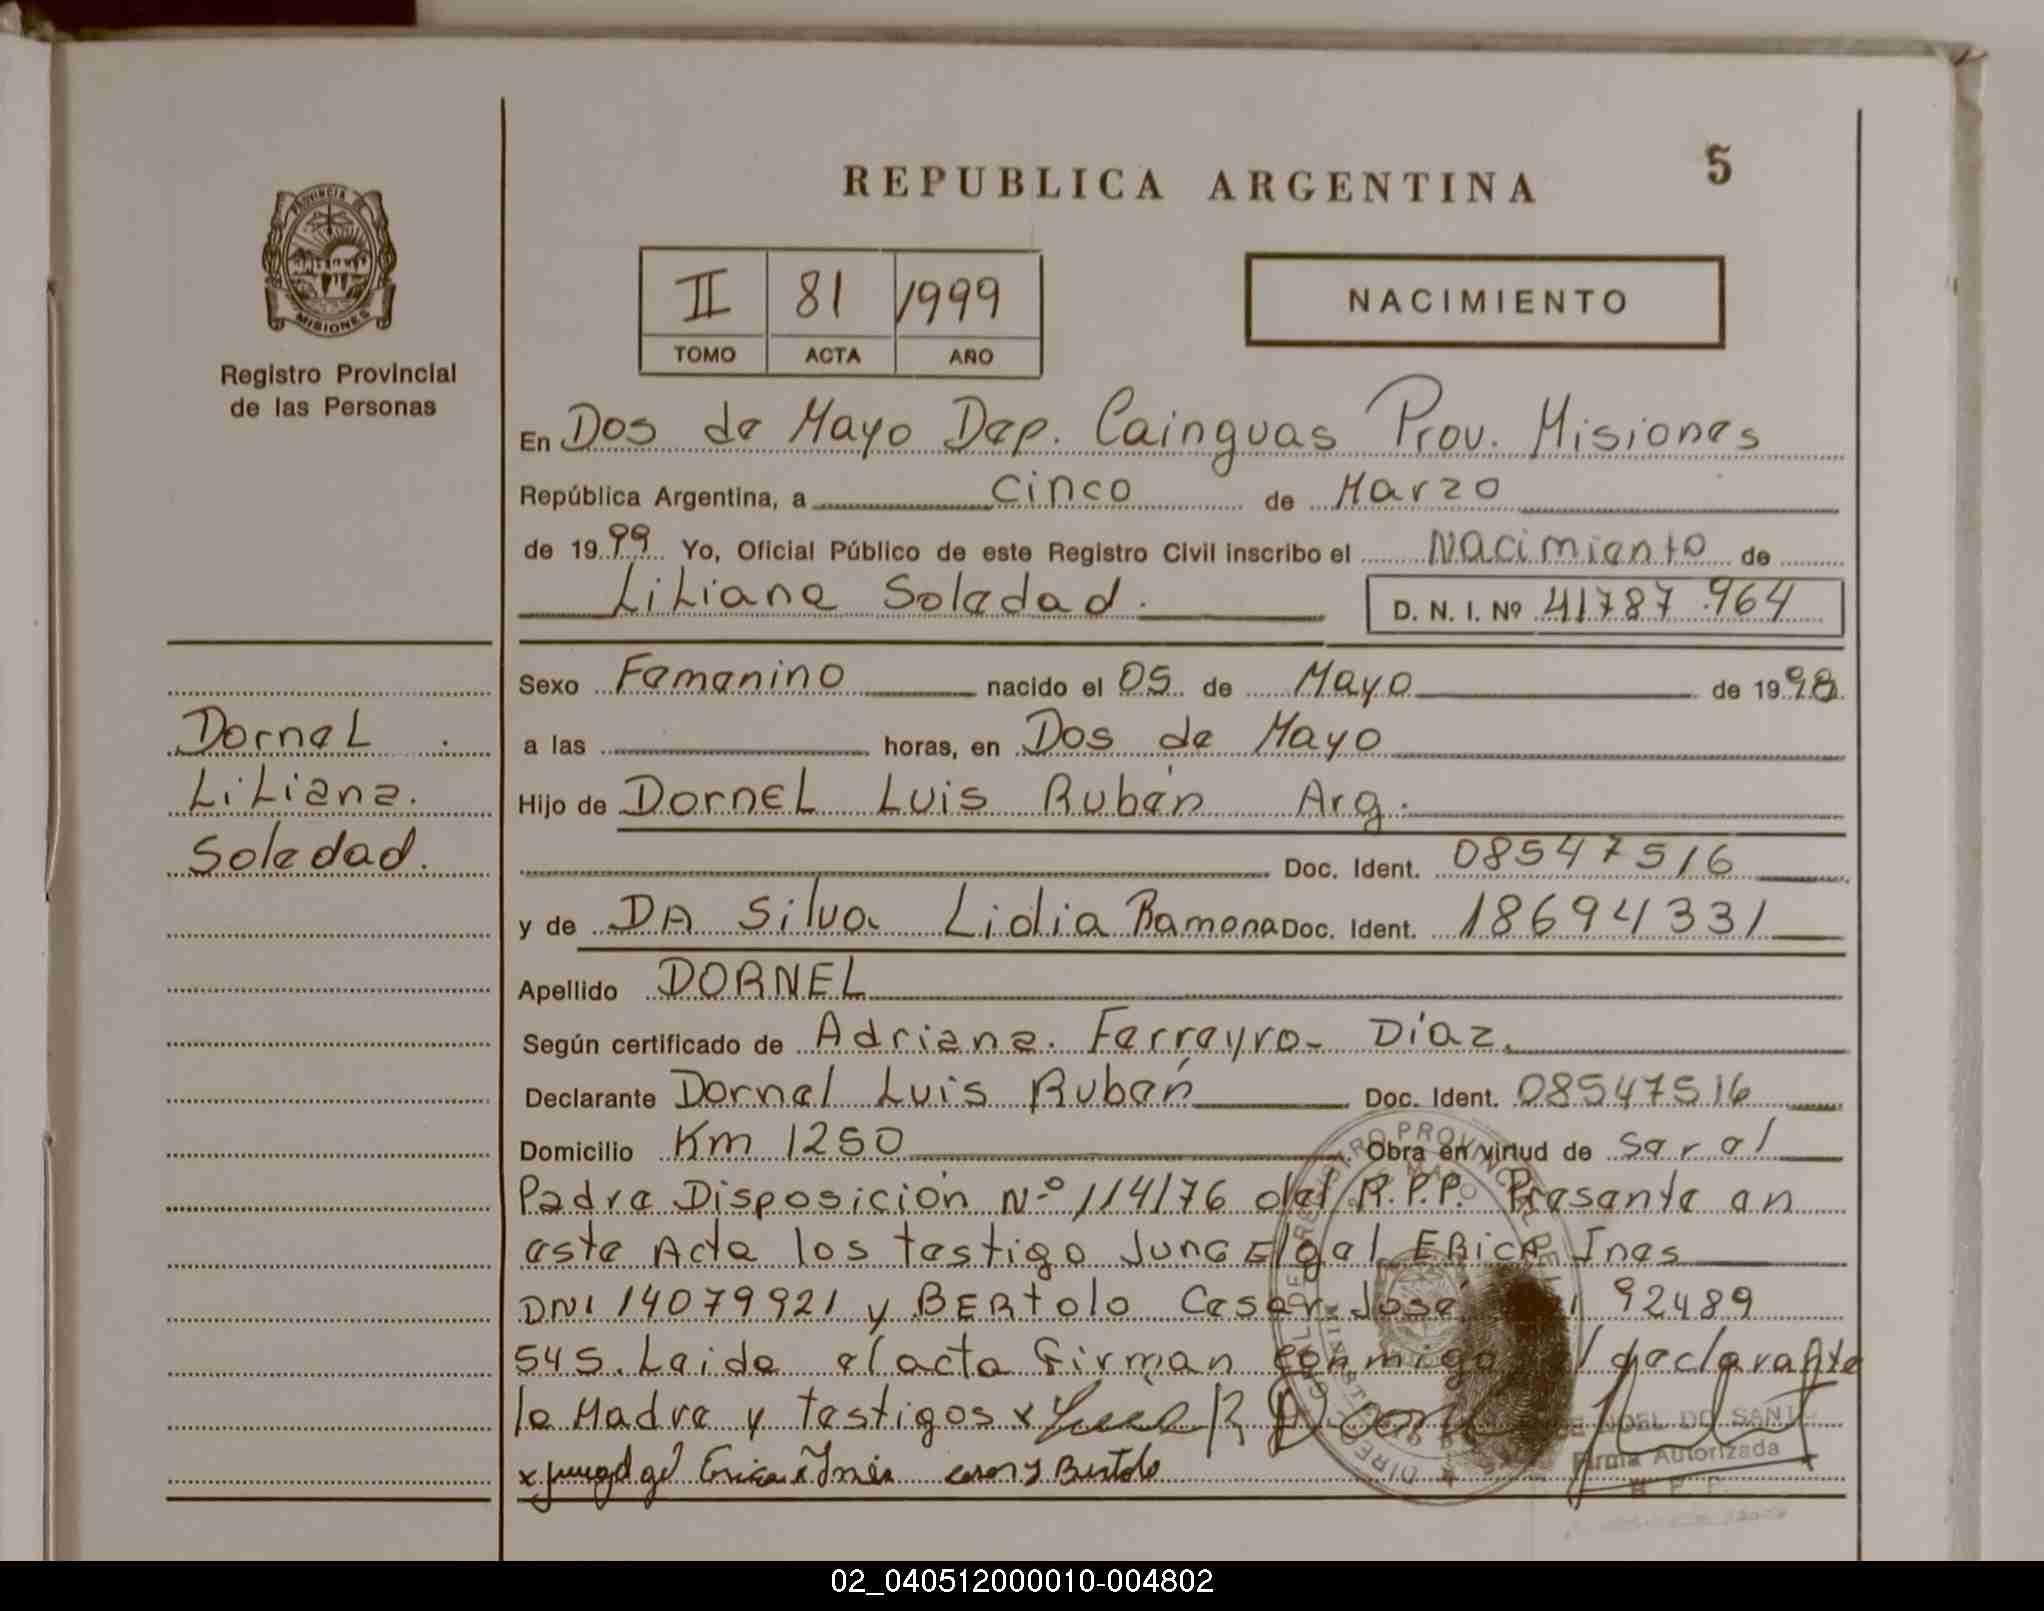 REPUBLICA ARGENTINA
5
PROVINCIA DE
MISIONES
Registro Provincial
de las Personas
II 81 1999
TOMO ACTA AÑO
NACIMIENTO
En Dos de Mayo Dep. Cainguas Prov. Misiones
República Argentina, a cinco de Marzo
de 1999 Yo, Oficial Público de este Registro Civil inscribo el Nacimiento de
Liliana Soledad.
D. N. I. Nº 41787.964
Sexo Femenino nacido el 05 de Mayo de 1998
a las horas, en Dos de Mayo
Hijo de Dornel Luis Rubén Arg.
Doc. Ident. 08547516
y de DA Silva Lidia Ramona Doc. Ident. 18694331
Apellido DORNEL
Según certificado de Adriana. Ferreyro- Díaz.
Declarante Dornel Luis Rubén Doc. Ident. 08547516
Domicilio Km 1250 Obra en virtud de ser el
Padre Disposición Nº 114/76 del R.P.P. Presente en
este Acta los testigo Ines
DNI 14079921 y BERtolo Cesar José 92489
545. Leida el acta Firman conmigo el declarante
la Madre y testigos x
Dornel
Liliana.
Soledad.
Firma Autorizada
02_040512000010-004802